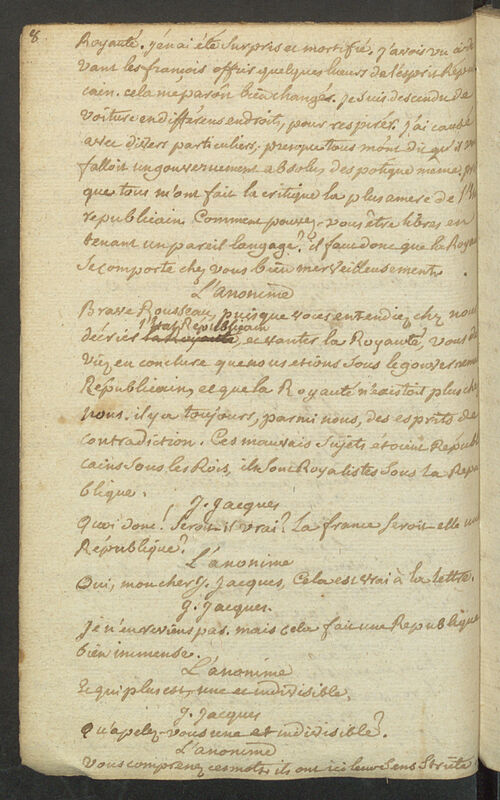 8.
Royauté. j'en ai été surpris et mortifié. j'avois vu
vant les françois offrir quelques lueurs de l'esprit Répu
cain. cela me paroît bien changé. je suis descendu de
voiture en différens endroits, pour respirer. j'ai causé
avec divers particuliers. presque tous m'ont dit qu'il
falloit un gouvernement absolu, despotique même, pr
que tous m'ont fait la critique la plus amere de l'
republicain. Comment pouvez-vous être libres en
tenant un pareil langage? il faut donc que la Roya
se comporte chez vous bien merveilleusement.
L'anonime
Brave Rousseau, puisque vous entendiez chez nou
l'Etat Républicain
décrier la Royauté, et vanter la Royauté, vous de
viez en conclure que nous etions sous le gouvernem
Républicain, et que la Royauté n'existoit plus che
nous. il y a toujours, parmi nous, des esprits de
contradiction. Ces mauvais sujets étoient Républi
cains sous les Rois, ils sont Royalistes sous la Repu
blique.
J. Jacques
Quoi donc! seroit-il vrai? La france seroit-elle un
République?
L'anonime
Oui, mon cher J. Jacques, Cela est vrai à la lettre.
J. Jacques.
Je n'en reviens pas. mais cela fait une Republique
bien immense.
L'anonime
Et qui plus est, une et indivisible.
J. Jacques
Qu'apelez-vous une et indivisible?
L'anonime
Vous comprenez ces mots, ils ont ici leur sens strict